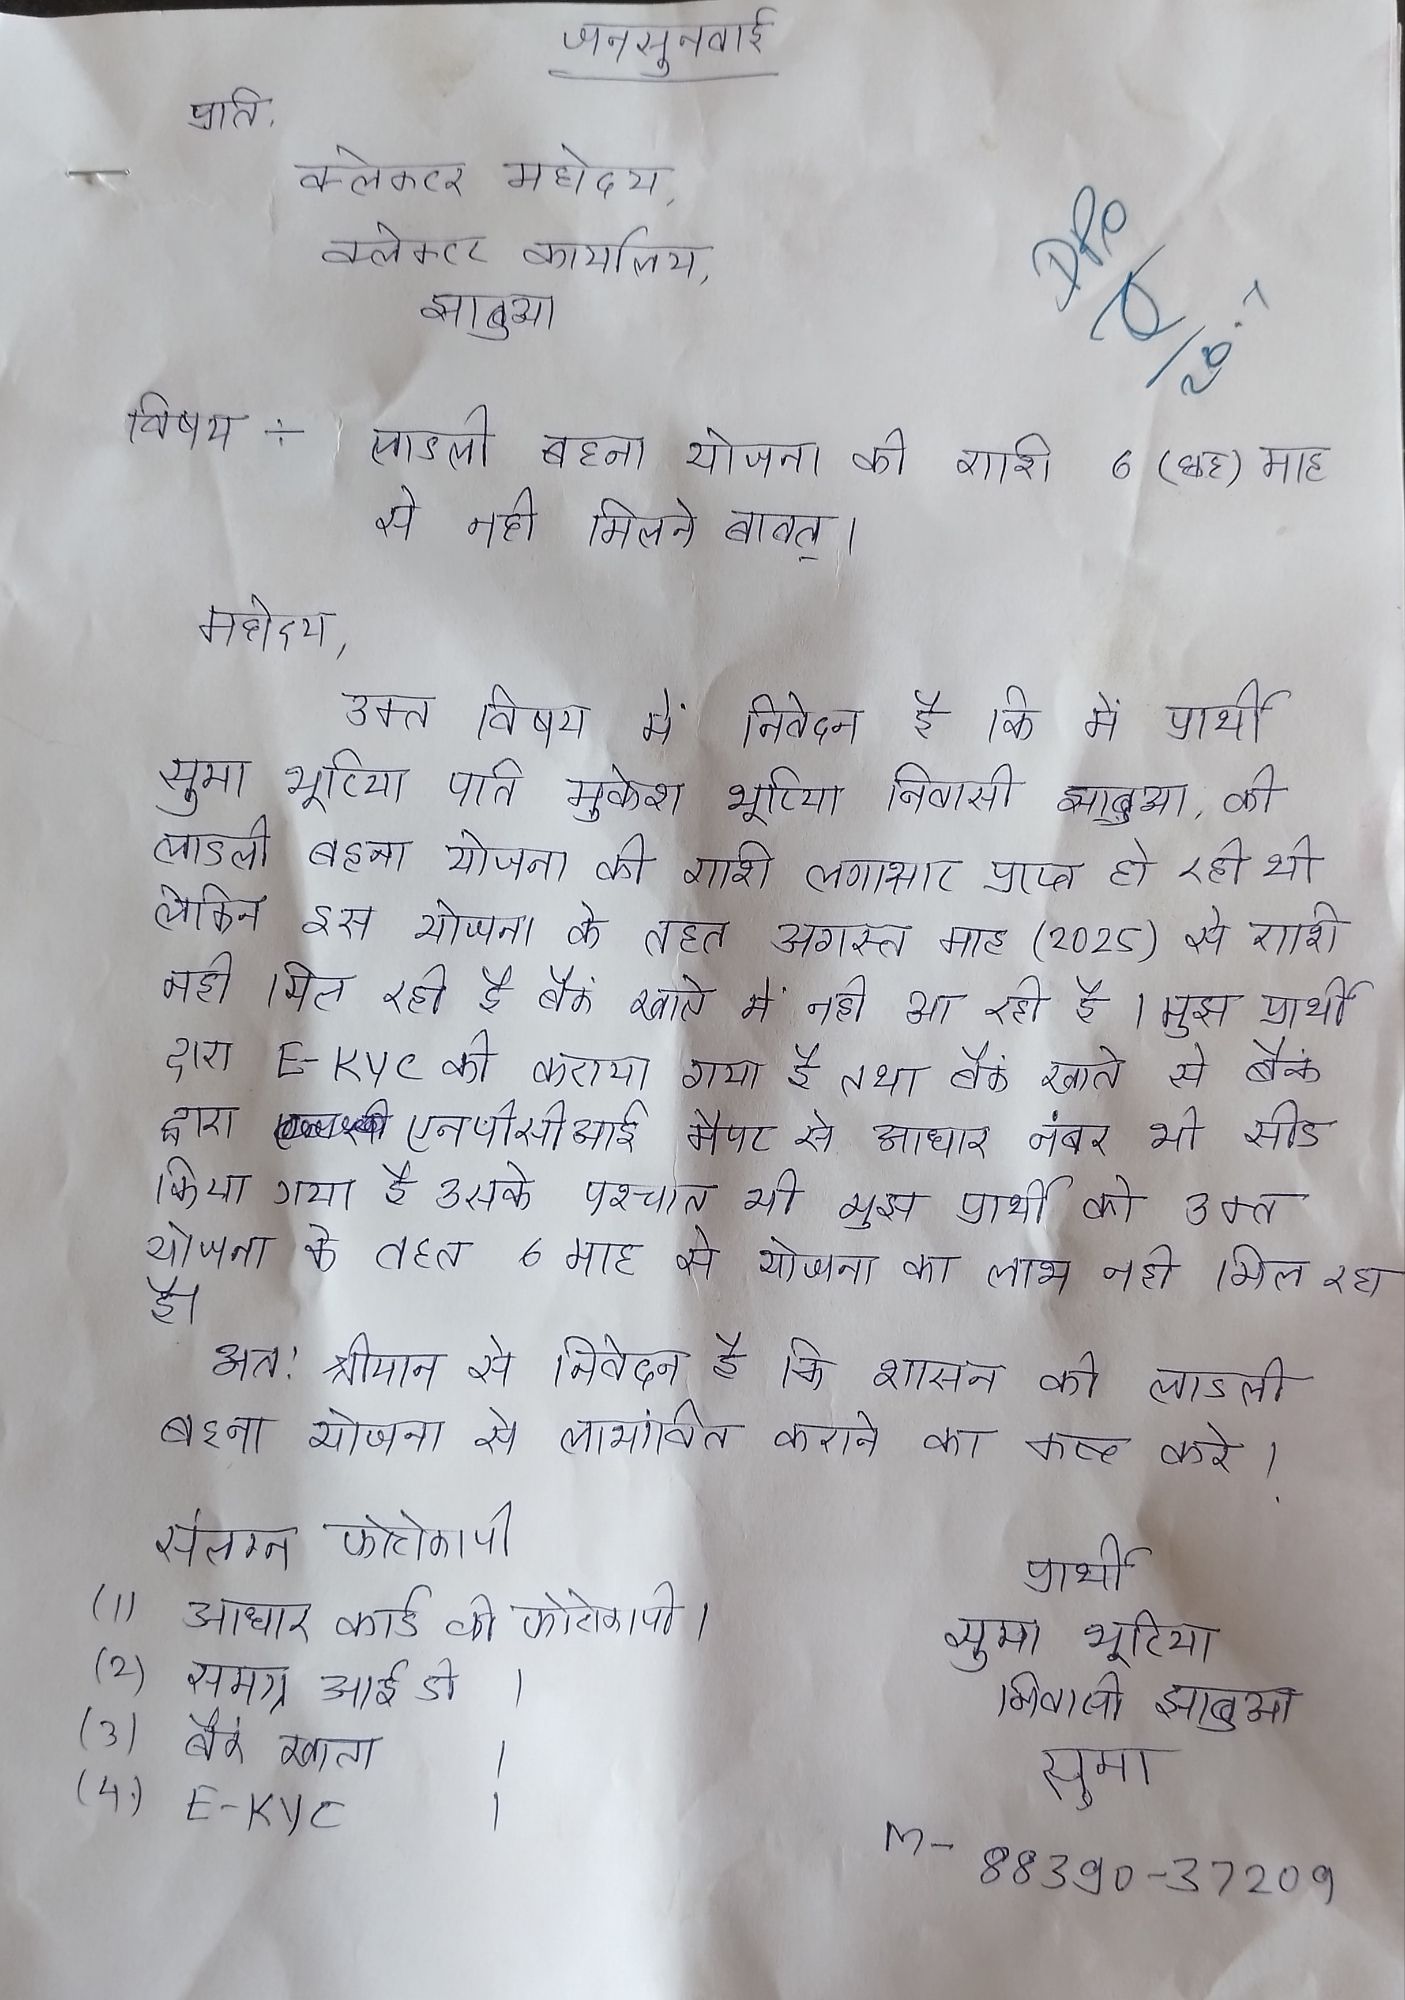 जनसुनवाई
प्रति,
क्लेक्टर महोदय,
क्लेक्टर कार्यालय,
झाबुआ
विषय ÷ लाडली बहना योजना की राशि 6 (छह) माह
से नही मिलने बावत्।
महोदय,
उक्त विषय में निवेदन है कि में प्रार्थी
सुमा भूरिया पति मुकेश भूरिया निवासी झाबुआ, की
लाडली बहना योजना की राशि लगाभार प्राप्त हो रही थी
लेकिन इस योजना के तहत अगस्त माह (2025) से राशी
नही मिल रही है बैंक खाते में नही आ रही है। मुझ प्रार्थी
द्वारा E-KYC की कराया गया है तथा बैंक खाते से बैंक
द्वारा एनपीसीआई मैपर से आधार नंबर भी सीड
किया गया है उसके पश्चात भी मुझ प्रार्थी को उक्त
योजना के तहत 6 माह से योजना का लाभ नही मिल रहा
है।
अतः श्रीमान से निवेदन है कि शासन की लाडली
बहना योजना से लाभांवित कराने का कष्ट करे।
संलग्न फोटोकापी
(1) आधार कार्ड की फोटोकापी।
(2) समग्र आई डी ।
(3) बैंक खाता ।
(4.) E-KYC ।
प्रार्थी
सुमा भूरिया
निवासी झाबुआ
सुमा
M- 88390-37209